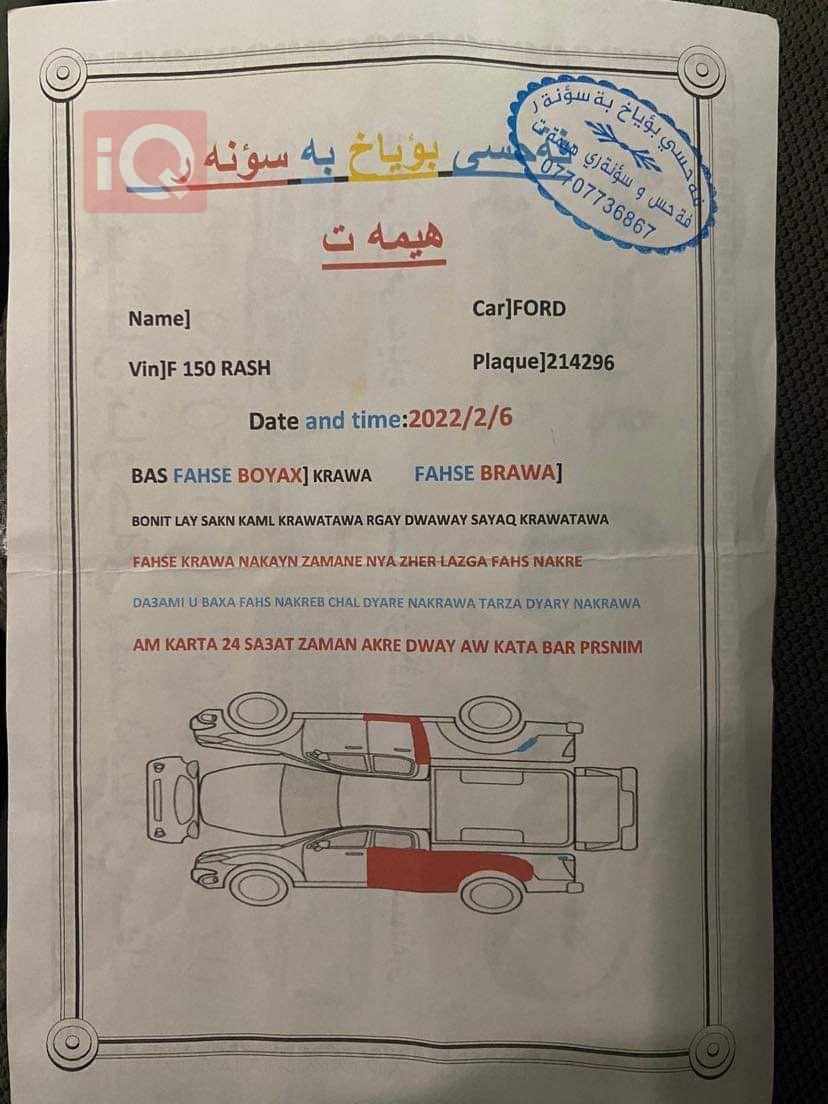 iQ
فەحسی بۆیاخ به سۆنه ر
هيمه ت
فةحسي بؤياخ بة سؤنة ر
فةحس و سؤنةري هيمةت
07707736867
Name]
Car]FORD
Vin]F 150 RASH
Plaque]214296
Date and time:2022/2/6
BAS FAHSE BOYAX] KRAWA FAHSE BRAWA]
BONIT LAY SAKN KAML KRAWATAWA RGAY DWAWAY SAYAQ KRAWATAWA
FAHSE KRAWA NAKAYN ZAMANE NYA ZHER LAZGA FAHS NAKRE
DA3AMI U BAXA FAHS NAKREB CHAL DYARE NAKRAWA TARZA DYARY NAKRAWA
AM KARTA 24 SA3AT ZAMAN AKRE DWAY AW KATA BAR PRSNIM